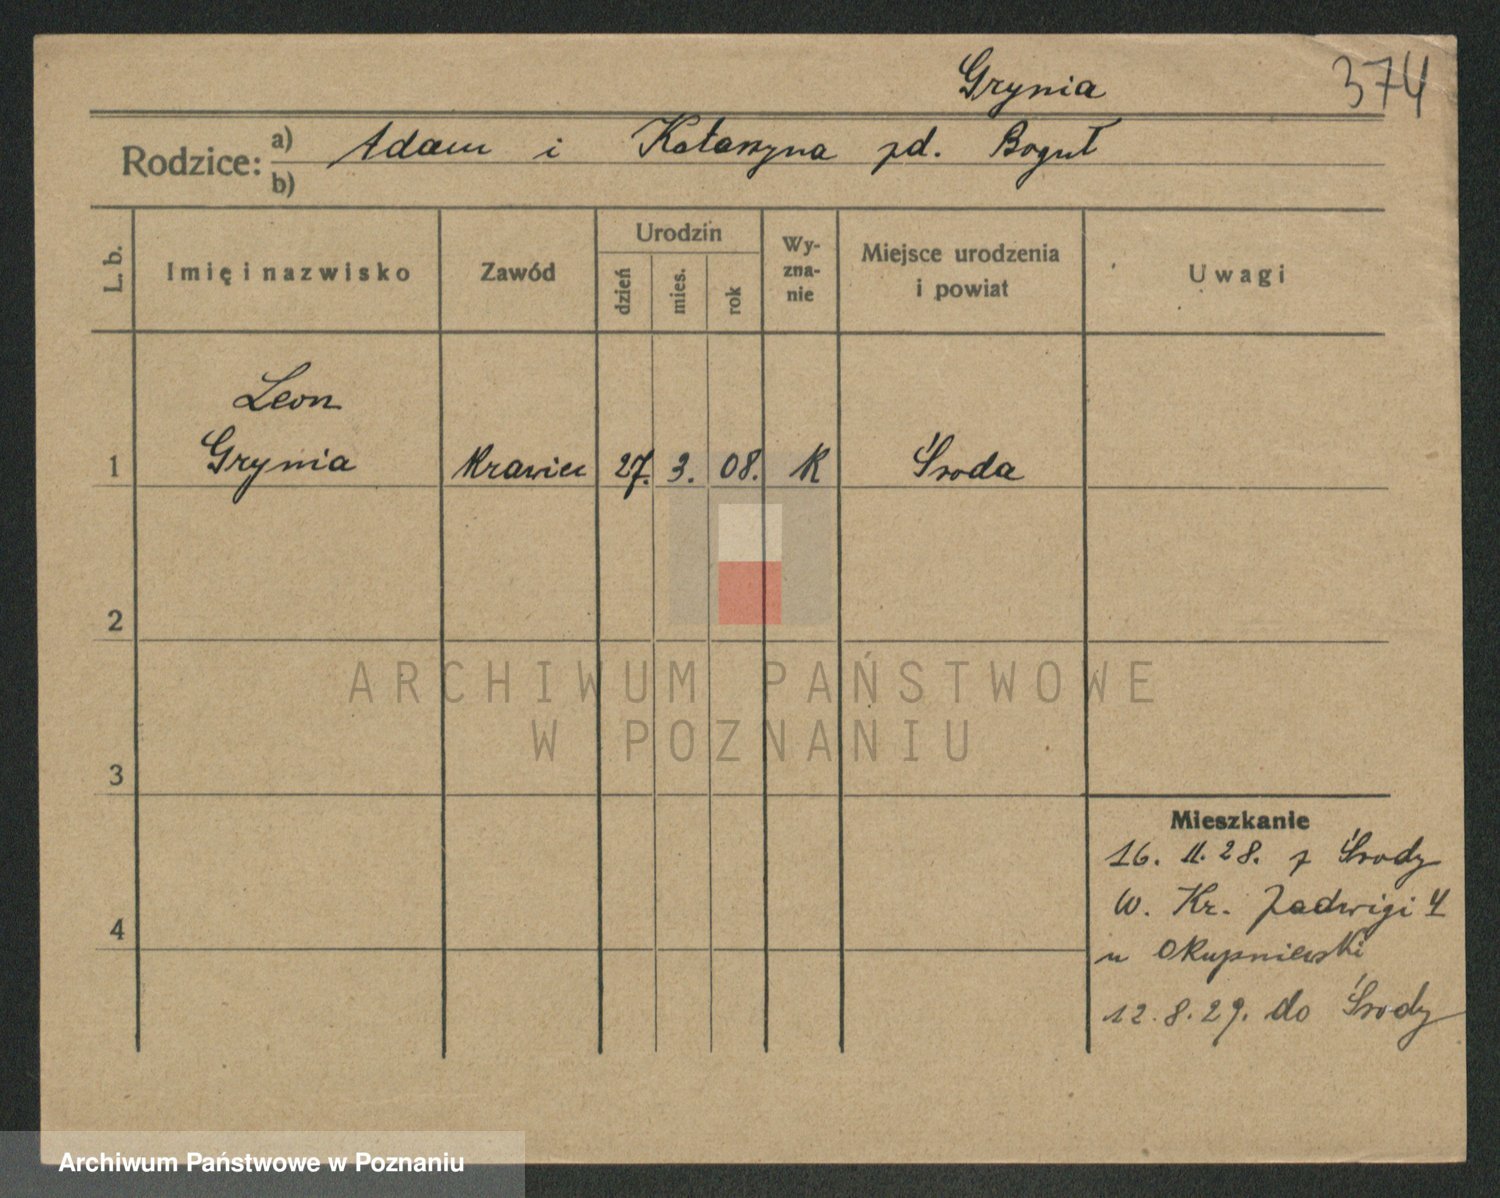 Grynia 374
Rodzice: a) Adam i Katarzyna zd. Boguł
b)
L. b. Imię i nazwisko Zawód Urodzin dzień mies. rok Wy-zna-nie Miejsce urodzenia i powiat Uwagi
Leon
1 Grynia krawiec 27. 3. 08. K Środa
2
ARCHIWUM PAŃSTWOWE
W POZNANIU
3
Mieszkanie
16. 11. 28. z Środy
W. Kr. Jadwigi 4
4
u Okupniewski
12. 8. 29. do Środy
Archiwum Państwowe w Poznaniu